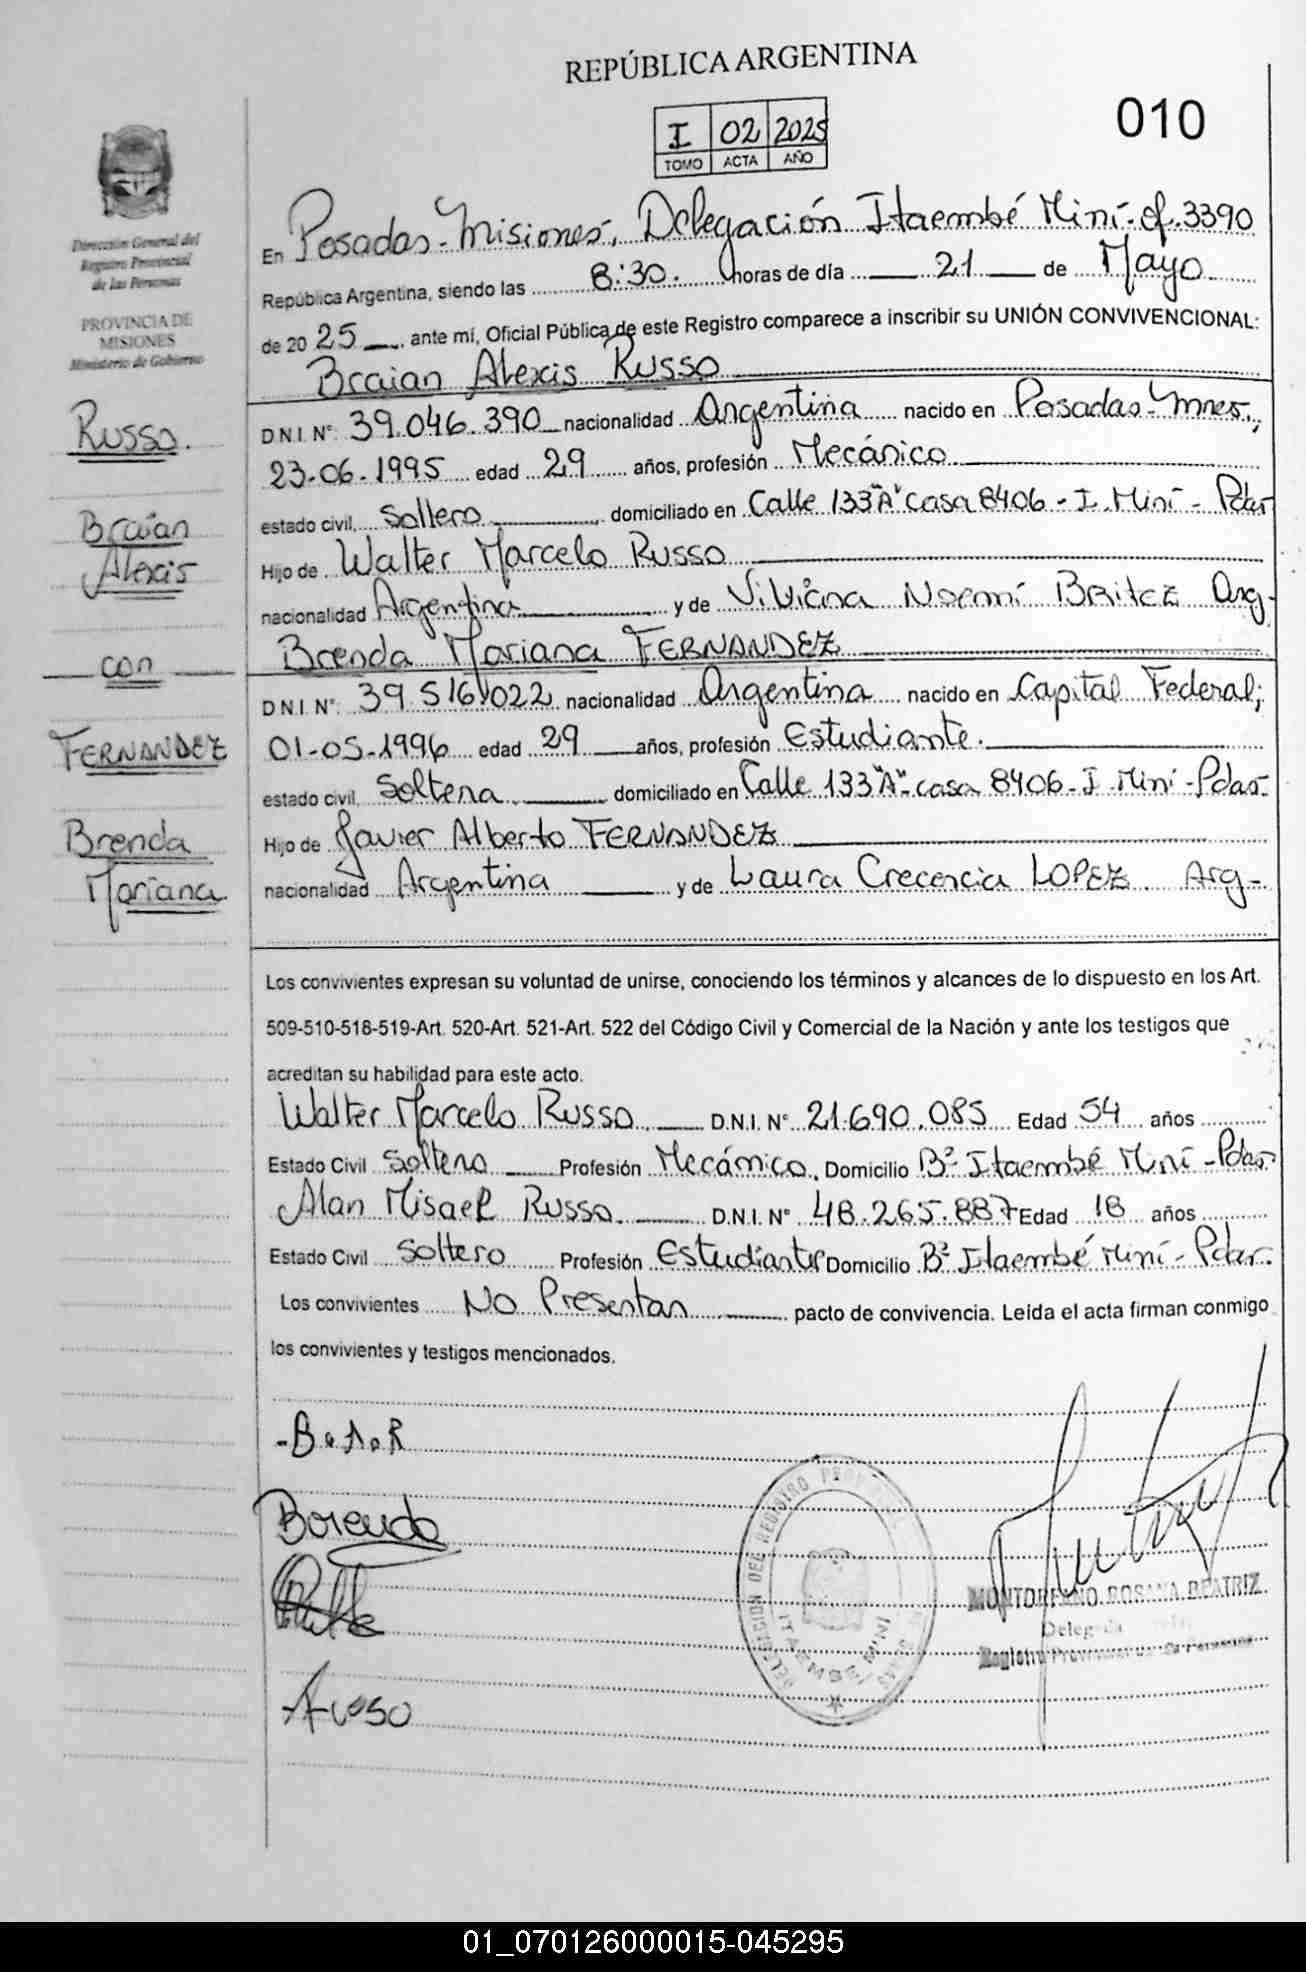 REPÚBLICA ARGENTINA
010
I 02 2025
TOMO ACTA AÑO
Dirección General del
Registro Provincial
de las Personas
PROVINCIA DE
MISIONES
Ministerio de Gobierno
Russo.
Braian
Alexis
con
FERNANDEZ
Brenda
Mariana
En Posadas-Misiones, Delegación Itaembé Miní-cf.3390
República Argentina, siendo las 8:30. horas de día 21 de Mayo
de 20 25, ante mí, Oficial Pública de este Registro comparece a inscribir su UNIÓN CONVIVENCIONAL:
Braian Alexis Russo
D.N.I. N° 39.046.390 nacionalidad Argentina nacido en Posadas-Mnes,
23-06-1995 edad 29 años, profesión Mecánico
estado civil Soltero domiciliado en Calle 133"A" casa 8406 - I. Miní - Pdas
Hijo de Walter Marcelo Russo
nacionalidad Argentina y de Viviana Noemí Britez Arg-
Brenda Mariana FERNANDEZ
D.N.I. N° 39.516.022 nacionalidad Argentina nacido en Capital Federal;
01-05-1996 edad 29 años, profesión Estudiante.
estado civil Soltera domiciliado en Calle 133"A"-casa 8406-I Miní-Pdas.
Hijo de Javier Alberto FERNANDEZ
nacionalidad Argentina y de Laura Crecencia LOPEZ Arg-
Los convivientes expresan su voluntad de unirse, conociendo los términos y alcances de lo dispuesto en los Art.
509-510-518-519-Art. 520-Art. 521-Art. 522 del Código Civil y Comercial de la Nación y ante los testigos que
acreditan su habilidad para este acto.
Walter Marcelo Russo D.N.I. N° 21.690.085 Edad 54 años
Estado Civil Soltero Profesión Mecánico, Domicilio B° Itaembé Miní-Pdas.
Alan Misael Russo. D.N.I. N° 48.265.887 Edad 18 años
Estado Civil Soltero Profesión Estudiante Domicilio B° Itaembé Miní-Pdas.
Los convivientes No Presentan pacto de convivencia. Leída el acta firman conmigo
los convivientes y testigos mencionados.
-B.A.R
Brenda
DELEGACION DEL REGISTRO
ITAEMBE MINI
MONTORFANO ROSANA BEATRIZ
Registro Provincial de las Personas
01_070126000015-045295